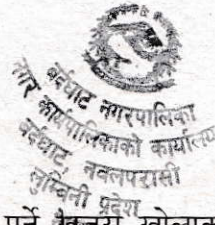 बर्दघाट नगरपालिका
नगर कार्यपालिकाको कार्यालय
बर्दघाट नवलपरासी
लुम्बिनी प्रदेश
पर्ने